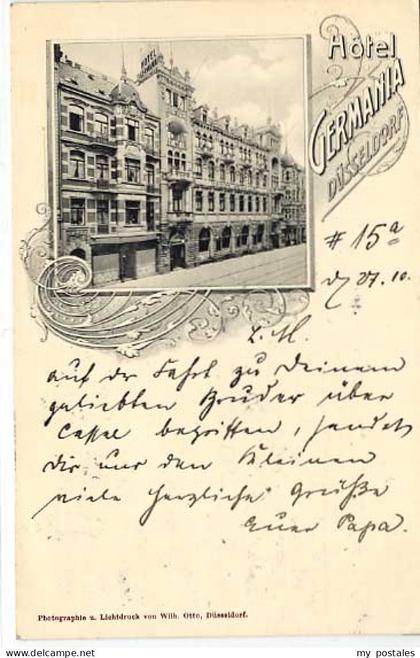 HOTEL
Hôtel
GERMANIA
DÜSSELDORF
# 15a
d 27. 10.
L. M.
auf der Fahrt zu Deinem
geliebten Bruder über
Cassel begriffen, sendet
Dir und den Kleinen
viele herzliche Grüße
Euer Papa.
Photographie u. Lichtdruck von Wilh. Otto, Düsseldorf.
© my-postales